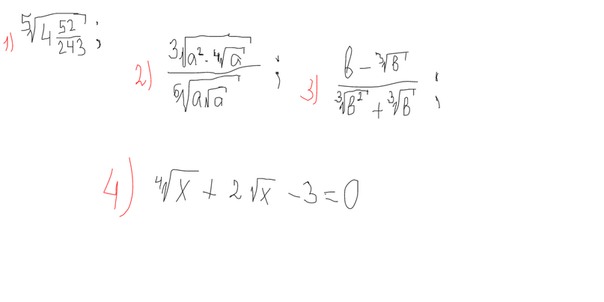 1) ⁵√(4 52/243) ;
2) ³√(a² · ⁴√a) / ⁶√(a√a) ;
3) (b − ³√b) / (³√b² + ³√b) ;
4) ⁴√x + 2√x − 3 = 0